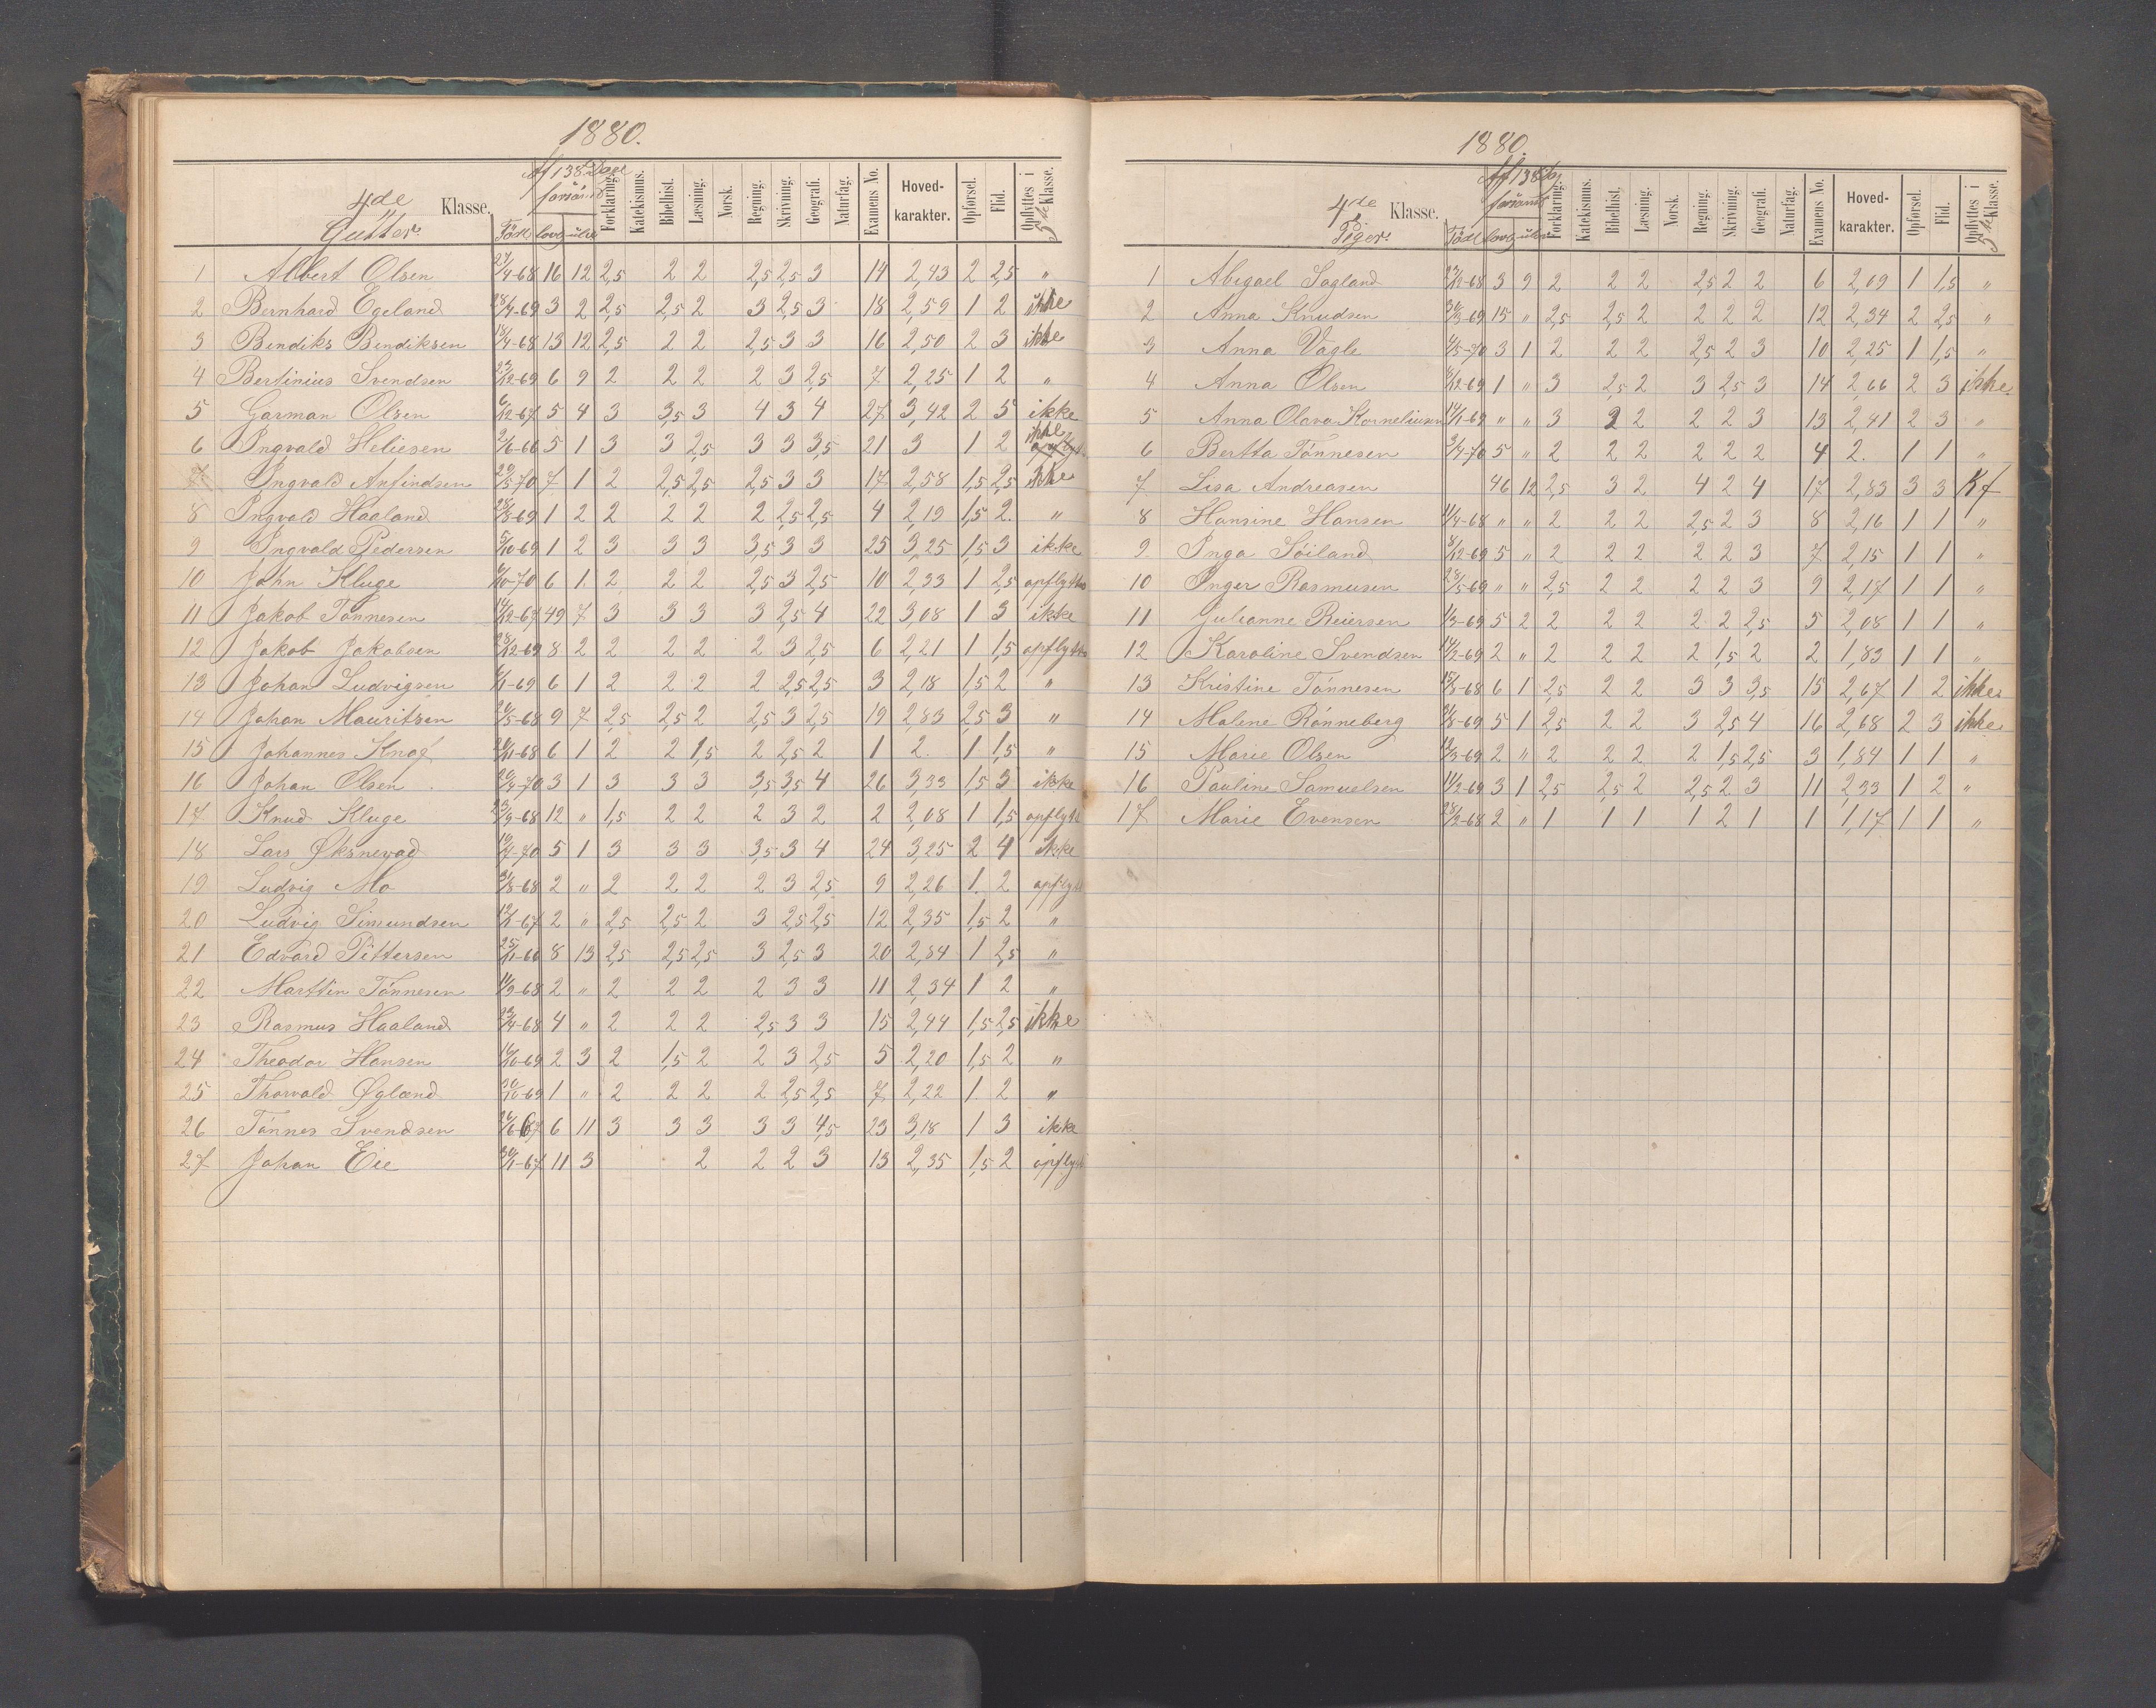 1880.
4de Klasse.
Gutter.
Af 138 Dage forsömt
Född lovl. ulov.
Forklaring. Katekismus. Bibelhist. Læsning. Norsk. Regning. Skrivning. Geografi. Naturfag. Examens No. Hoved-karakter. Opførsel. Flid. Opflyttes i 5te Klasse.
1 Albert Olsen 27/4-68 16 12 2,5 2 2 2,5 2,5 3 14 2,43 2 2,5 "
2 Bernhard Egeland 28/4-69 3 2 2,5 2,5 2 3 2,5 3 18 2,59 1 2 ikke
3 Bendiks Bendiksen 18/4-68 13 12 2,5 2 2 2,5 3 3 16 2,50 2 3 ikke
4 Bertinius Svendsen 23/12-69 6 9 2 2 2 2 3 2,5 7 2,25 1 2 "
5 Garman Olsen 6/12-67 5 4 3 3,5 3 4 3 4 27 3,42 2 5 ikke
6 Ingvald Heliesen 2/6-66 5 1 3 3 2,5 3 3 3,5 21 3 1 2 ikke
7 Ingvald Anfindsen 29/5-70 7 1 2 2,5 2,5 2,5 3 3 17 2,58 1,5 2,5 ikke
8 Ingvald Haaland 28/8-69 1 2 2 2 2 2 2,5 2,5 4 2,19 1,5 2. "
9 Ingvald Pedersen 5/10-69 1 2 3 3 3 3,5 3 3 25 3,25 1,5 3 ikke
10 John Kluge 6/10-70 6 1 2 2 2 2,5 3 2,5 10 2,33 1 2,5 opflyttes
11 Jakob Tönnesen 14/12-67 49 7 3 3 3 3 2,5 4 22 3,08 1 3 ikke
12 Jakob Jakobsen 28/12-69 8 2 2 2 2 2 3 2,5 6 2,21 1 1,5 opflyttes
13 Johan Ludvigsen 6/1-69 6 1 2 2 2 2 2,5 2,5 3 2,18 1,5 2 "
14 Johan Mauritsen 26/5-68 9 7 2,5 2,5 2 2,5 3 2,5 19 2,83 2,5 3 "
15 Johannes Knof 26/11-68 6 1 2 2 1,5 2 2,5 2 1 2. 1 1,5 "
16 Johan Olsen 20/4-70 3 1 3 3 3 3,5 3,5 4 26 3,33 1,5 3 ikke
17 Knud Kluge 23/9-68 12 " 1,5 2 2 2 3 2 2 2,08 1 1,5 opflyt
18 Lars Øksnevad 19/7-70 5 1 3 3 3 3,5 3 4 24 3,25 2 4 ikke
19 Ludvig Mo 31/8-68 2 " 2 2 2 2 3 2,5 9 2,26 1. 2 opflyt
20 Ludvig Simundsen 12/11-67 2 " 2,5 2,5 2 3 2,5 2,5 12 2,35 1,5 2 "
21 Edvard Pittersen 25/11-66 8 13 2,5 2,5 2,5 3 2,5 3 20 2,84 1 2,5 "
22 Marttin Tönnesen 11/9-68 2 " 2 2 2 2 3 3 11 2,34 1 2 "
23 Rasmus Haaland 23/4-68 4 " 2 2 2 2,5 3 3 15 2,44 1,5 2,5 ikke
24 Theodor Hansen 16/10-69 2 3 2 1,5 2 2 3 2,5 5 2,20 1,5 2 "
25 Thorvald Øglænd 30/10-69 1 " 2 2 2 2 2,5 2,5 7 2,22 1 2 "
26 Tönnes Svendsen 26/6 67 6 11 3 3 3 3 3 4,5 23 3,18 1 3 ikke
27 Johan Eie 30/1-67 11 3 2 2 2 3 13 2,35 1,5 2 opflyt
1880.
4de Klasse.
Piger.
Af 138 Dg forsömt
Född lovl. ulov.
Forklaring. Katekismus. Bibelhist. Læsning. Norsk. Regning. Skrivning. Geografi. Naturfag. Examens No. Hoved-karakter. Opførsel. Flid. Opflyttes i 5te Klasse.
1 Abigael Sagland 23/12-68 3 9 2 2 2 2,5 2 2 6 2,09 1 1,5 "
2 Anna Knudsen 30/3-69 15 " 2,5 2,5 2 2 2 2 12 2,34 2 2,5 "
3 Anna Vagle 4/5-70 3 1 2 2 2 2,5 2 3 10 2,25 1 1,5 "
4 Anna Olsen 8/12-69 1 " 3 2,5 2 3 2,5 3 14 2,66 2 3 ikke
5 Anna Olava Korneliusen 14/1-69 " " 3 2 2 2 2 3 13 2,41 2 3 "
6 Bertta Tönnesen 3/4-70 5 " 2 2 2 2 2 2 4 2. 1 1 "
7 Lisa Andreasen 46 12 2,5 3 2 4 2 4 17 2,83 3 3 Kf
8 Hansine Hansen 11/4-68 " " 2 2 2 2,5 2 3 8 2,16 1 1 "
9 Inga Söiland 8/12-69 5 " 2 2 2 2 2 3 7 2,15 1 1 "
10 Inger Rasmusen 28/5-69 " " 2,5 2 2 2 2 3 9 2,17 1 1 "
11 Julianne Reiersen 1/3-69 5 2 2 2 2 2 2 2,5 5 2,08 1 1 "
12 Karoline Svendsen 14/2-69 2 " 2 2 2 2 1,5 2 2 1,83 1 1 "
13 Kristine Tönnesen 15/8-68 6 1 2,5 2 2 3 3 3,5 15 2,67 1 2 ikke
14 Malene Rönneberg 31/8-69 5 1 2,5 2 2 3 2,5 4 16 2,68 2 3 ikke
15 Marie Olsen 12/3-69 2 " 2 2 2 2 1,5 2,5 3 1,84 1 1 "
16 Pauline Samuelsen 11/2-69 3 1 2,5 2,5 2 2,5 2 3 11 2,33 1 2 "
17 Marie Evensen 28/2-68 2 " 1 1 1 1 2 1 1 1,17 1 1 "